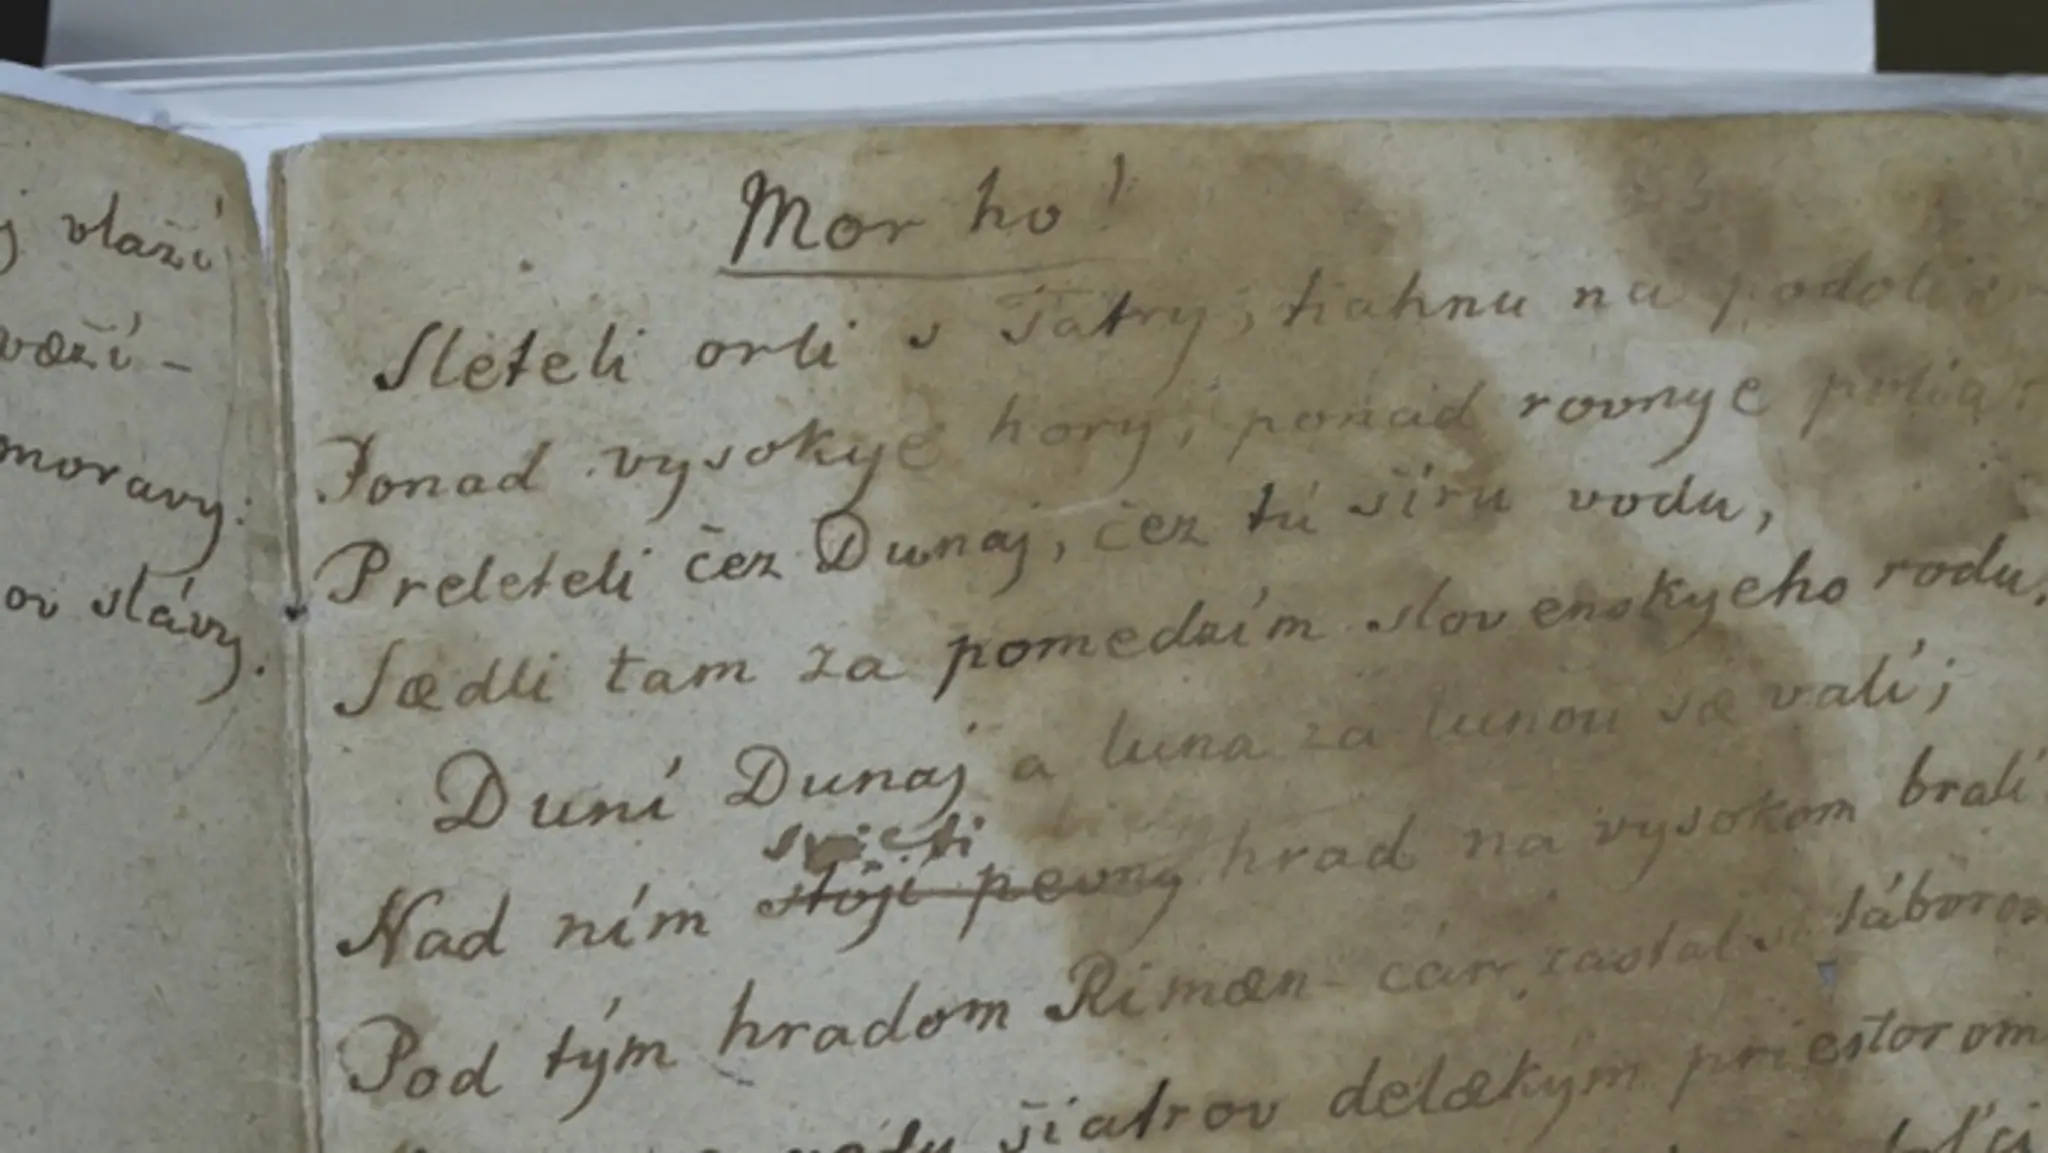 j vlaží
važí -
moravy:
ov slávy.
Mor ho!
Sleteli orli s Tatry, tiahnu na podolia
Ponad vysokye hory, ponad rovnye polia;
Preleteli čez Dunaj, čez tú šíru vodu,
Sædli tam za pomedzím slovenskyeho rodu.
Duní Dunaj a luna za lunou sæ valí;
svieti
Nad ním stojí pevný hrad na vysokom bralí
Pod tým hradom Rimæn-cár zastal si táborom
šiatrov delækým priestorom